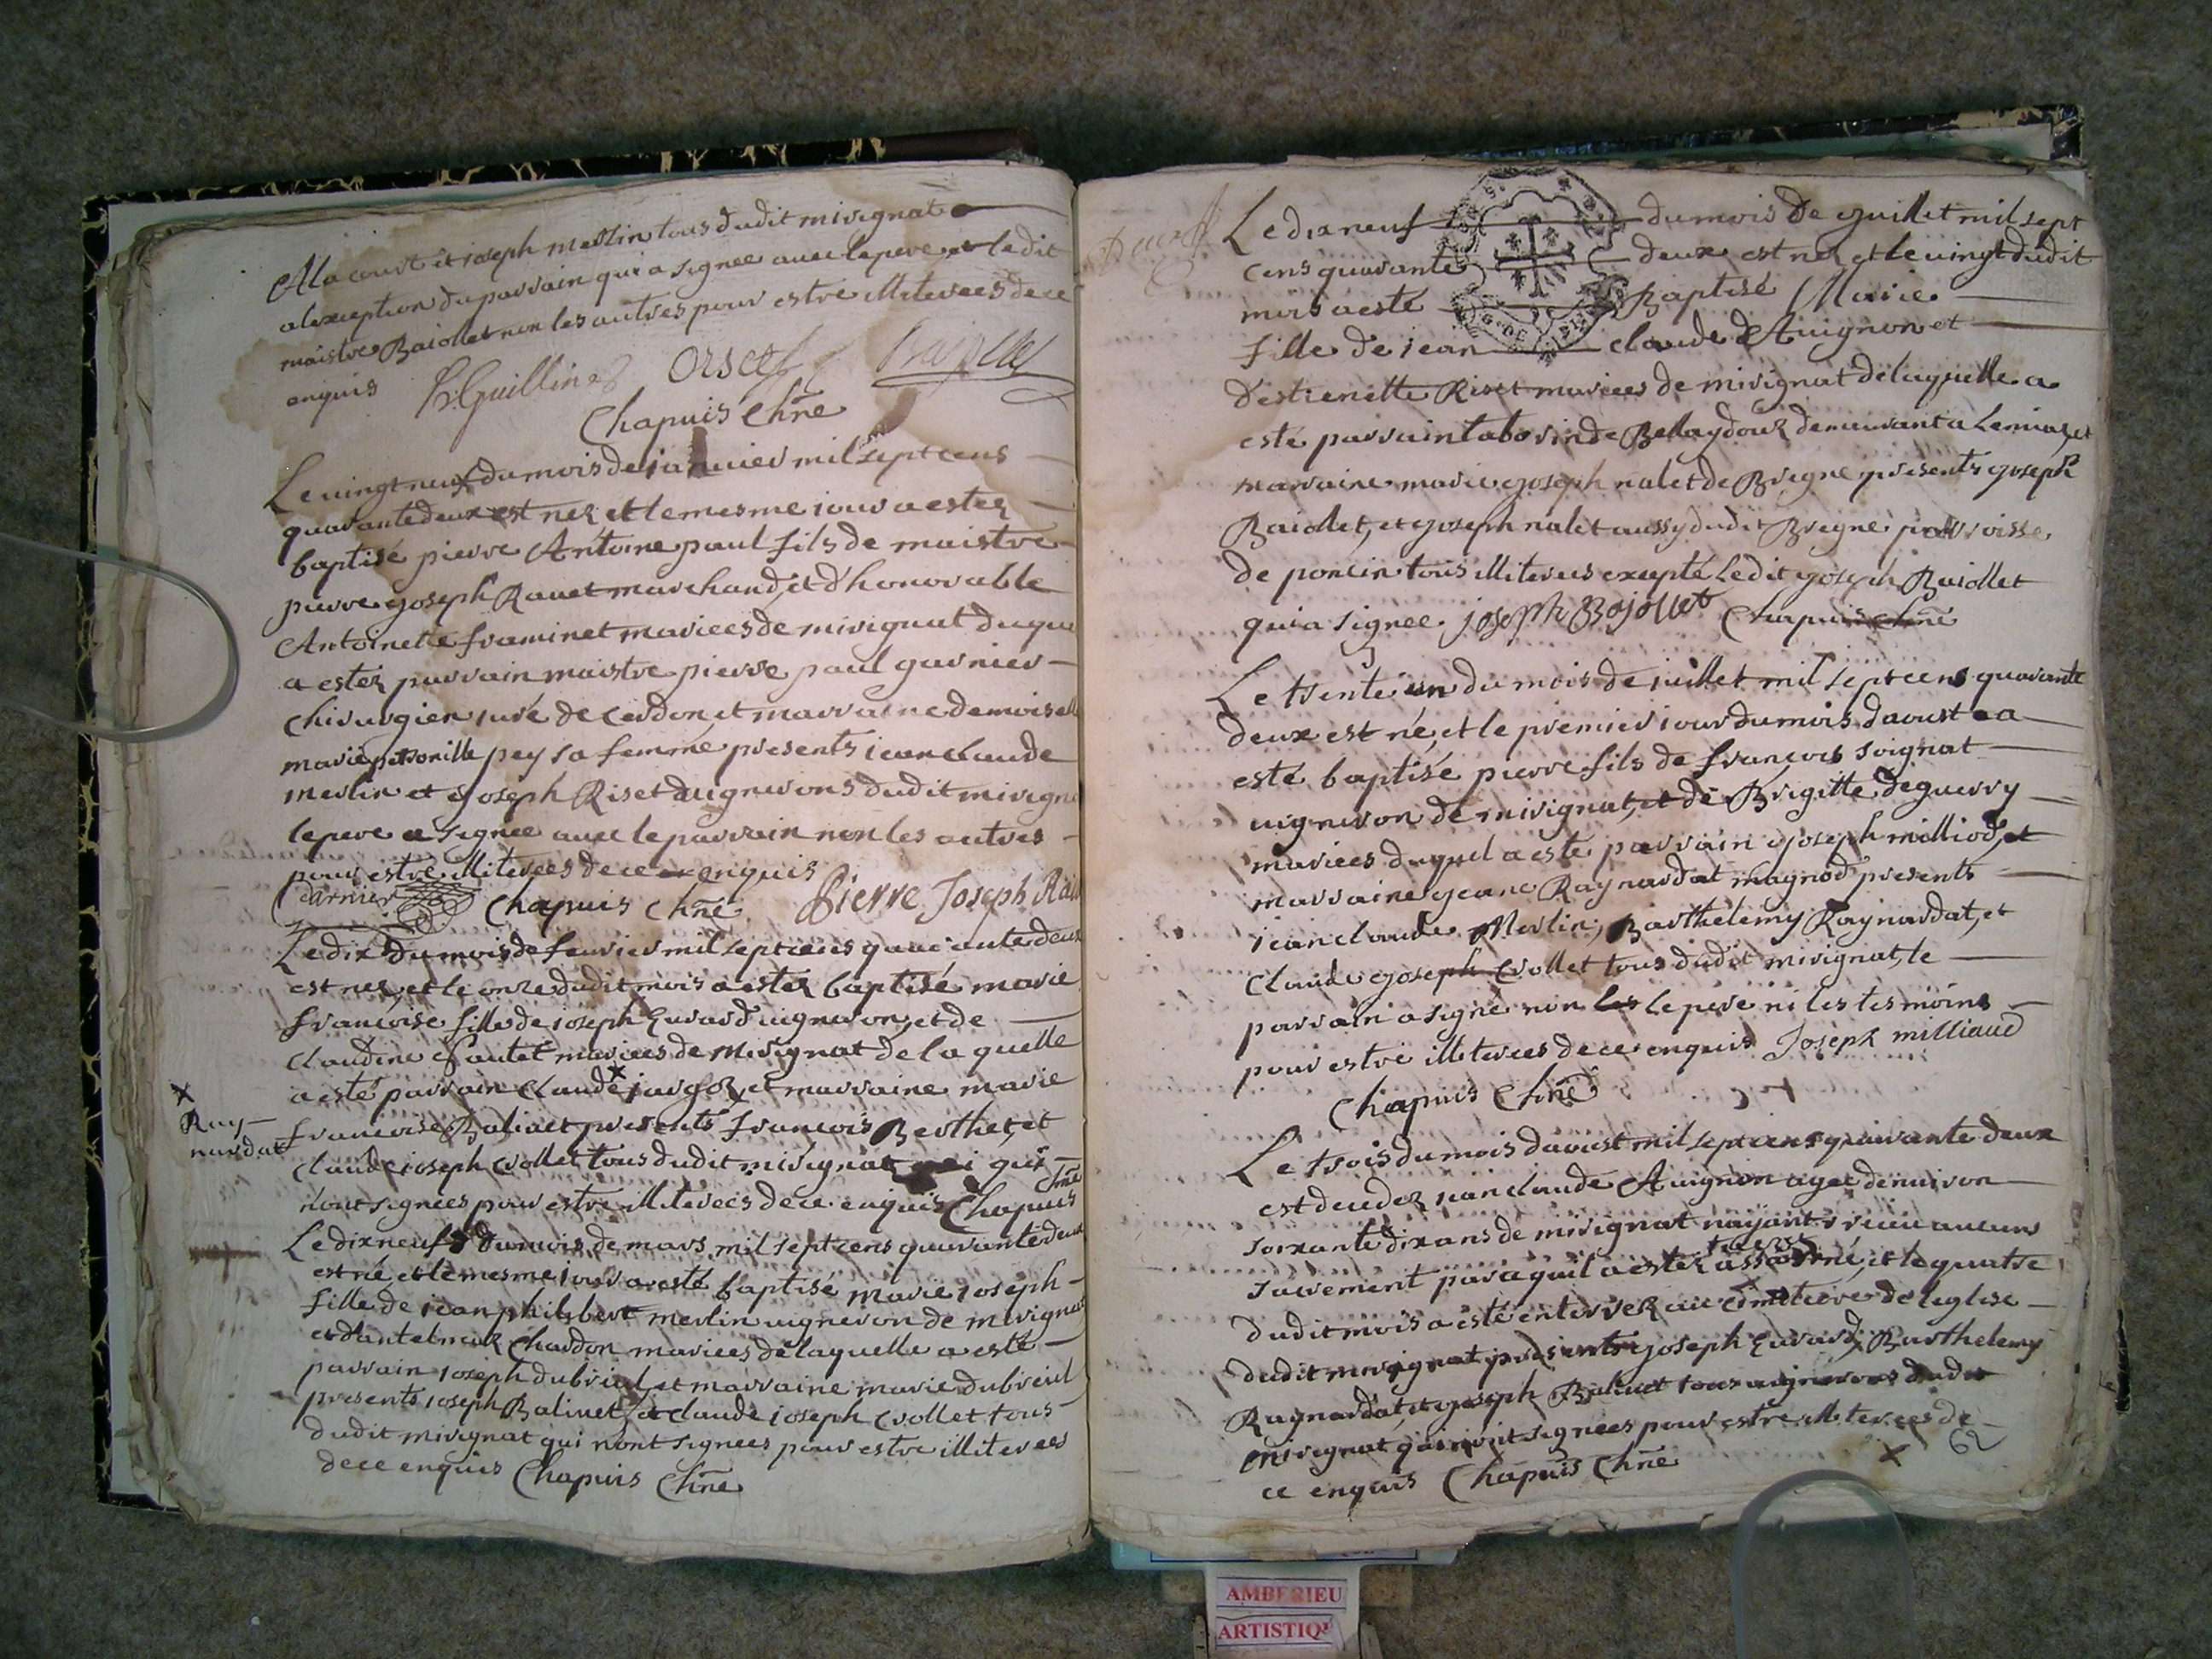 Macourt et ioseph merlin tous dudit mirignat
alexception du parrain qui a signee auec lepere et ledit
maistre Baiollet non les autres pour estre illiterees de ce
enquis Guillin Orset Baiollet
Chapuis Chne
Le uingt neuf du mois de ianuier mil sept cens
quarante deux est nez et le mesme iour a estez
baptisé pierre Antoine paul fils de maistre
pierre joseph Rauet marchand, et d'honorable
Antoinette framinet mariees de mirignat duquel
a estez parrain maistre pierre paul garnier
chirurgien iuré de Cerdon, et marraine demoiselle
marie petronille pey sa femme presents iean claude
merlin et joseph Riset uignerons dudit mirignat
le pere a signee auec le parrain non les autres
pour estre illiterees de ce enquis
Garnier Chapuis Chne Pierre Joseph Rauet
Le dix du mois de feurier mil sept cens quarante deux
est nez, et le onze dudit mois a estez baptisé marie
francoise fille de ioseph Euvard uigneron, et de
claudine Pautet mariees de Mirignat de la quelle
a esté parrain Claude jargoz et marraine marie
x
x
Ray-
nardat
francoise Balivet presents francois Berthet, et
claude ioseph Crollet tous dudit mirignat qui
n'ont signees pour estre illiterees de ce enquis Chapuis Chne
Le dix neuf du mois de mars mil sept cens quarante deux
est né, et le mesme iour a esté baptisé marie ioseph
fille de iean philibert merlin uigneron de mirignat
et d'antelmez Chardon mariees de laquelle a esté
parrain ioseph dubreul et marraine marie dubreul
presents ioseph Balivet, et claude ioseph Crollet tous
dudit mirignat qui n'ont signees pour estre illiterees
de ce enquis Chapuis Chne
Le dix neuf du mois de juillet mil sept
cens quarante deux est nez et le uingt dudit
mois a esté Baptisé Marie
fille de iean claude Auignon et
d'estienette Riset mariees de mirignat de laquelle a
esté parrain de Belaydoux demeurant a Lemiaz, et
marraine marie joseph nalet de Bregne presents joseph
Baiollet, et joseph nalet aussy dudit Bregne parroisse
de poncin tous illiterees excepté Ledit joseph Baiollet
qui a signee. joseph Bojollet Chapuis Chne
Le trente un du mois de iuillet mil sept cens quarante
deux est né, et le premier iour du mois daoust a
esté baptisé pierre fils de francois soignat
uigneron de mirignat, et de Brigitte deguerry
mariees duquel a esté parrain joseph milliod, et
marraine jeane Raynardat magnod presents
iean claude Merlin, Barthelemy Raynardat, et
Claude joseph Crollet tous dudit mirignat, le
parrain a signé non le pere ni les tesmoins
pour estre illiterees de ce enquis Joseph milliaud
Chapuis Chne
Le trois du mois daoust mil sept cens quarante deux
est decedez iean claude Auignon aget denuiron
soixante dix ans de mirignat n'ayant receu aucuns
sacrement parcequil a estez assasiné, et le quatre
dudit mois a esté enterrez au cimetiere de leglise
dudit mirignat presents joseph Euvard, Barthelemy
Raynardat, et joseph Balivet tous uignerons dudit
mirignat qui n'ont signees pour estre illiterees de
ce enquis Chapuis Chne
x 62
AMBERIEU
ARTISTIQ